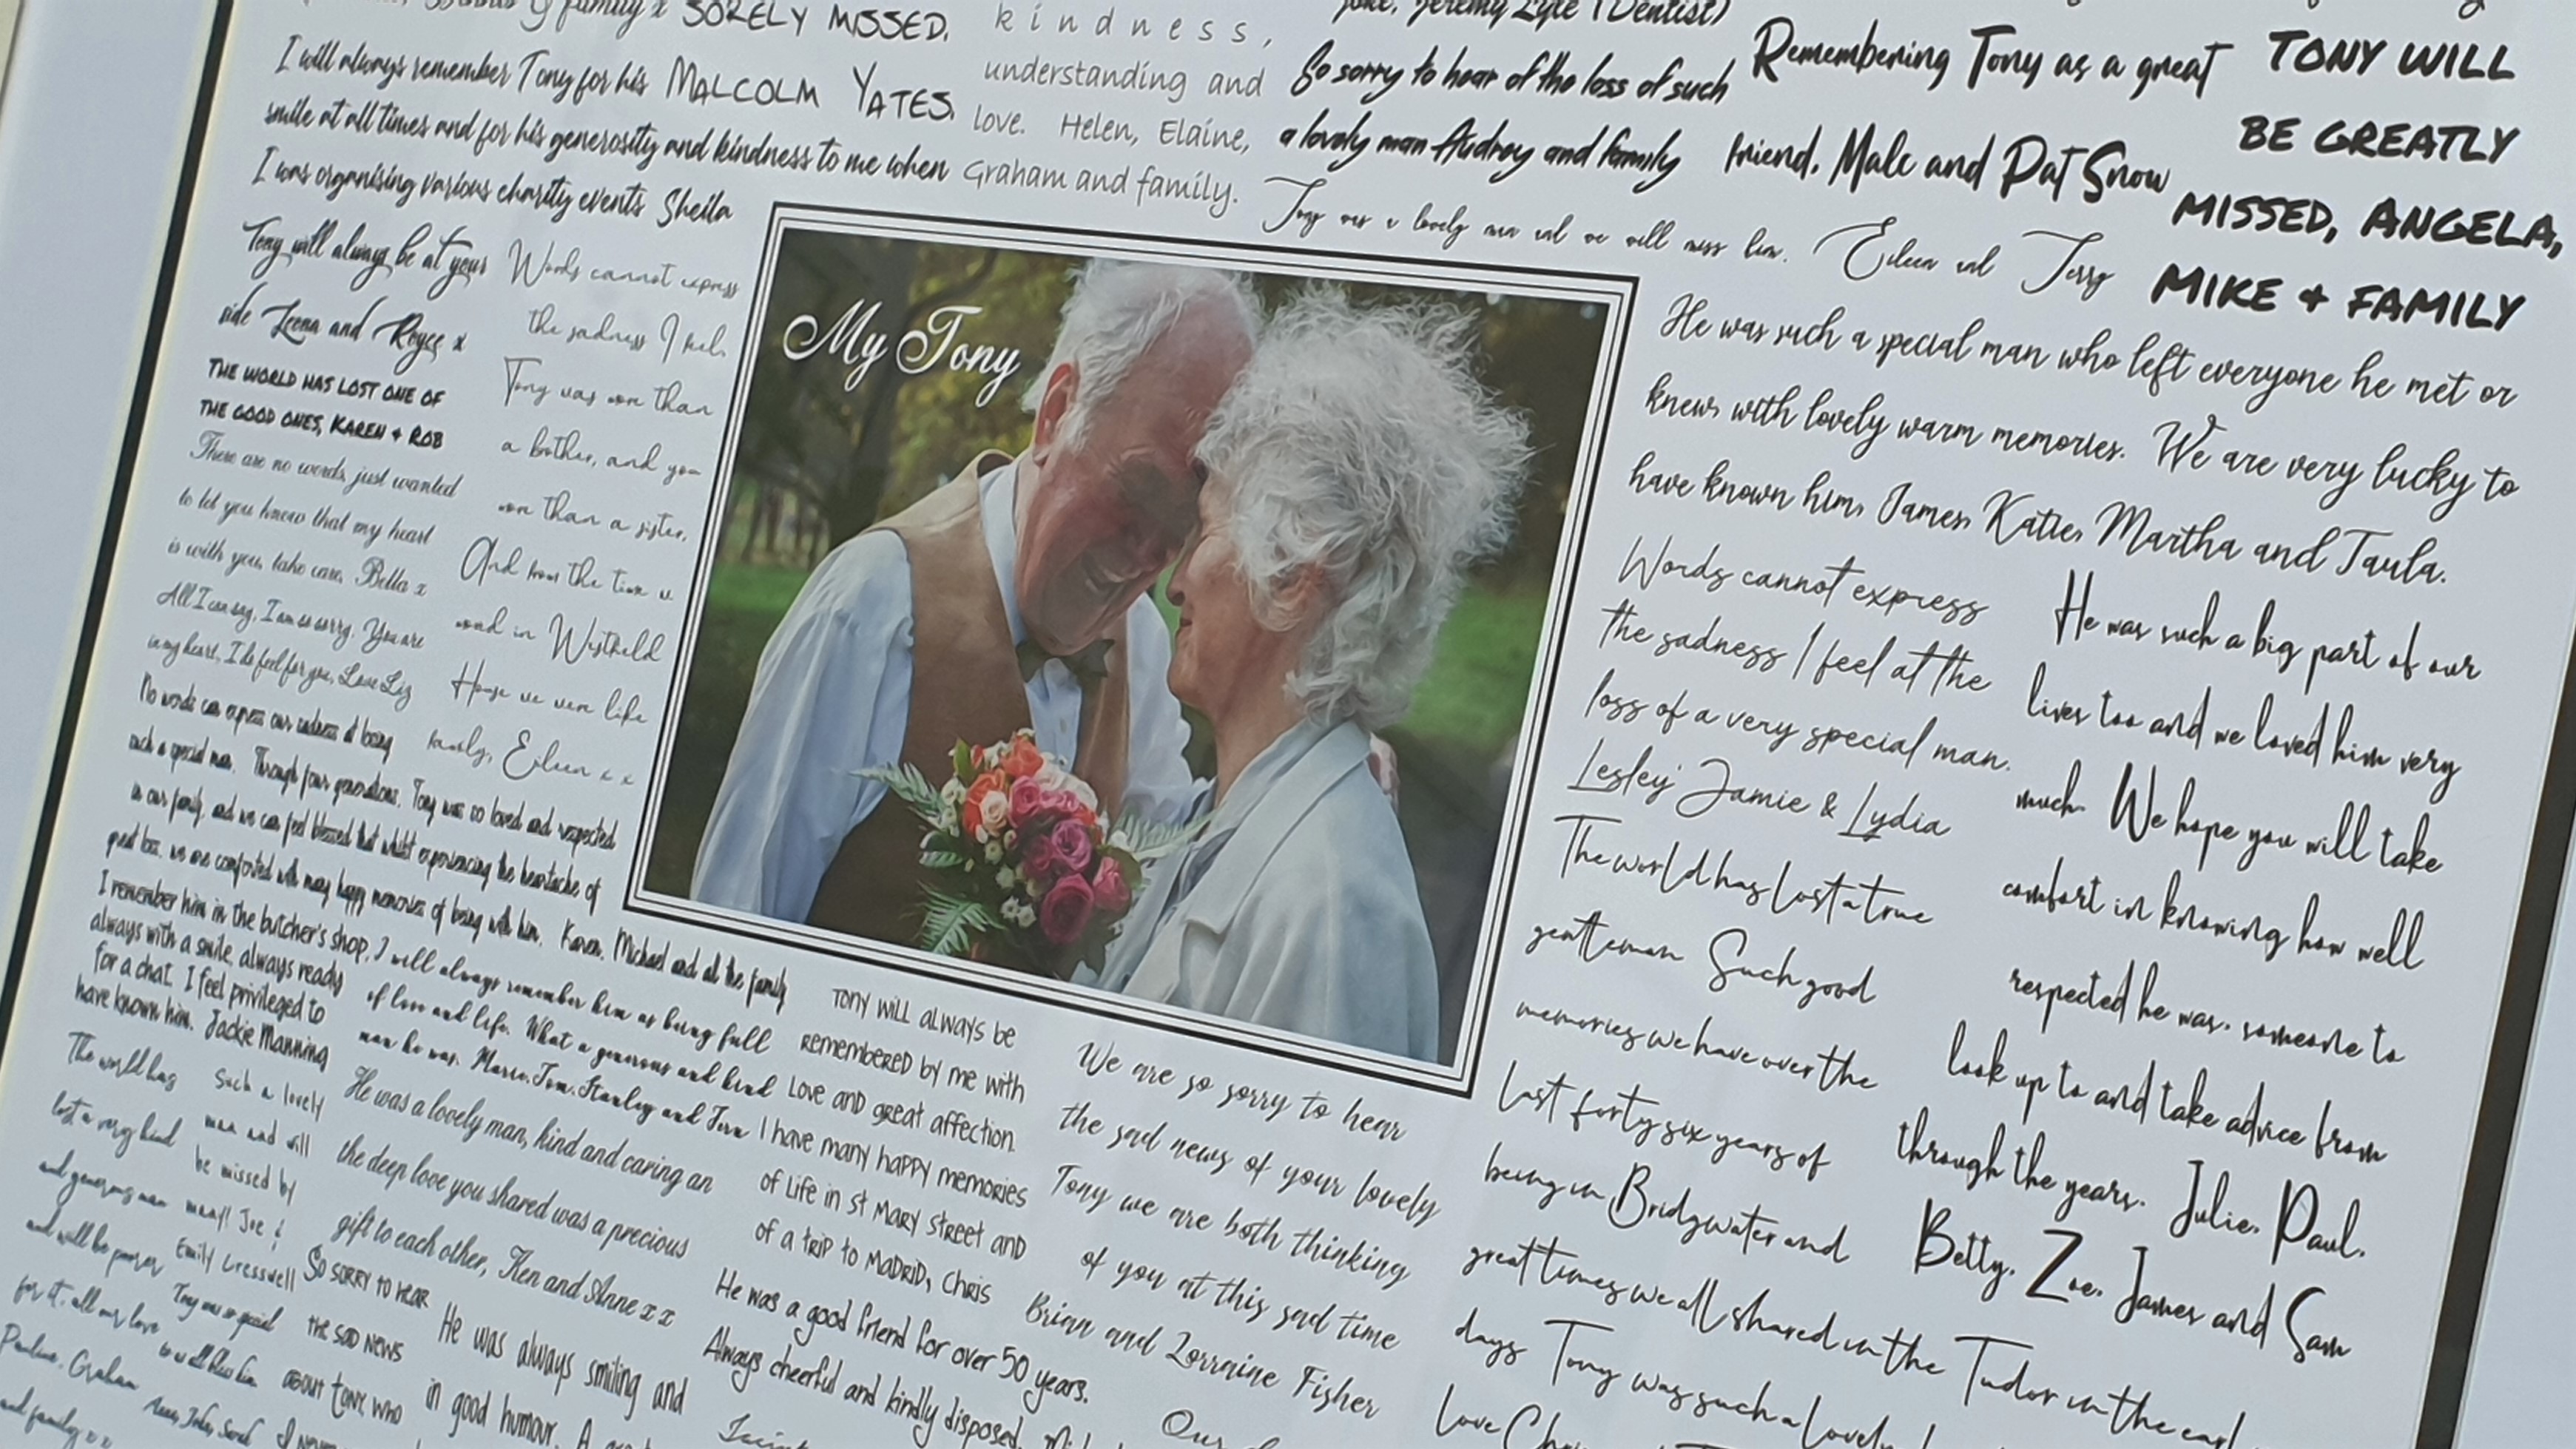 family x SORELY MISSED.
MALCOLM YATES.
I will always remember Tony for his
smile at all times and for his generosity and kindness to me when
I was organising various charity events Sheila
kindness,
understanding and
love. Helen, Elaine,
Graham and family.
joke, Jeremy Lyle (Dentist)
So sorry to hear of the loss of such
a lovely man Audrey and family
Remembering Tony as a great
friend, Malc and Pat Snow
TONY WILL
BE GREATLY
MISSED, ANGELA,
MIKE + FAMILY
Tony was a lovely man and we will miss him. Eileen and Terry
Tony will always be at your
side Leena and Royce x
THE WORLD HAS LOST ONE OF
THE GOOD ONES, KAREN + ROB
There are no words, just wanted
to let you know that my heart
is with you, take care, Bella x
All I can say, I am so sorry. You are
in my heart, I do feel for you, Love Liz
Words cannot express
the sadness I feel,
Tony was more than
a brother, and you
more than a sister,
And from the time we
in Westfield
House we were like
family, Eileen x x
My Tony
He was such a special man who left everyone he met or
knew, with lovely warm memories. We are very lucky to
have known him, James, Katie, Martha and Paula.
Words cannot express
the sadness I feel at the
loss of a very special man.
Lesley Jamie & Lydia
He was such a big part of our
lives too and we loved him very
much. We hope you will take
comfort in knowing how well
respected he was, someone to
look up to and take advice from
through the years. Julie, Paul,
Betty, Zoe, James and Sam
The world has lost a true
gentleman Such good
memories we have over the
last forty six years of
being in Bridgwater and
great times we all shared in the Tudor in the
days Tony was such a lovely
love
No words can express our sadness at losing
such a special man. Through four generations, Tony was so loved and respected
in our family, and we can feel blessed that whilst experiencing the heartache of
great loss, we are comforted with many happy memories of being with him. Karen, Michael and all the family
I remember him in the butcher's shop,
always with a smile, always ready
for a chat. I feel privileged to
have known him. Jackie Manning
I will always remember him as being full
of love and life. What a generous and kind
man he was. Marie, Tom, Stanley and
TONY WILL ALWAYS BE
REMEMBERED BY ME WITH
LOVE AND GREAT AFFECTION.
I HAVE MANY HAPPY MEMORIES
OF LIFE IN ST MARY STREET AND
OF A TRIP TO MADRID, CHRIS
We are so sorry to hear
the sad news of your lovely
Tony we are both thinking
of you at this sad time
Brian and Lorraine Fisher
The world has
lost a very kind
and generous man
and will be poorer
for it, all our love
Pauline, Graham
and family x x
Such a lovely
man and will
be missed by
many! Joe &
Emily Cresswell
He was a lovely man, kind and caring an
the deep love you shared was a precious
gift to each other, Ken and Anne x x
Tony was so special
to us all
SO SORRY TO HEAR
THE SAD NEWS
ABOUT TONY, WHO
He was always smiling and
in good humour. A
He was a good friend for over 50 years.
Always cheerful and kindly disposed,
Our